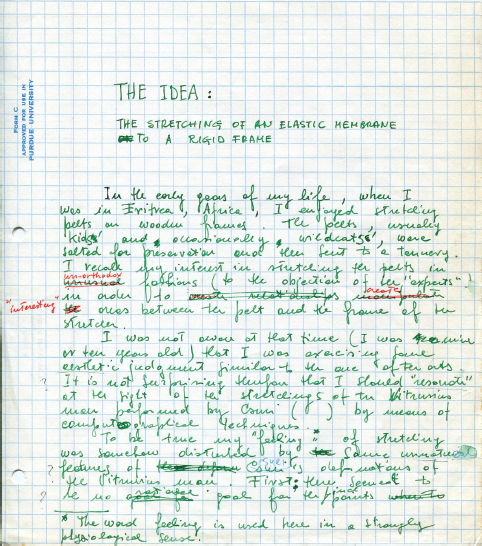 FORM C
APPROVED FOR USE IN
PURDUE UNIVERSITY
THE IDEA :
THE STRETCHING OF AN ELASTIC MEMBRANE
TO A RIGID FRAME
In the early years of my life, when I
was in Eritrea, Africa, I enjoyed stretching
pelts on wooden frames. The pelts, usually
kids' and, occasionally, wildcats', were
salted for preservation and then sent to a tannery.
I recall my interest in stretching the pelts in
un-orthodox
unusual fashions (to the objection of the "experts"!
in order to create
"interesting" ones between the pelt and the frame of the
stretcher.
I was not aware at that time (I was nine
or ten years old) that I was exercising some
aesthetic judgment similar to the one of the arts.
? It is not surprising therefore that I should "resonate"
at the sight of the stretchings of the Vitruvius
man performed by Csuri ( ) by means of
computer graphical techniques.
To be true my "feeling"* of stretching
was somehow disturbed by some unnatural
? features of Csuri's deformations of
the Vitruvius man. First, there seemed to
? be no goal for the points
* The word feeling is used here in a strongly
physiological sense.